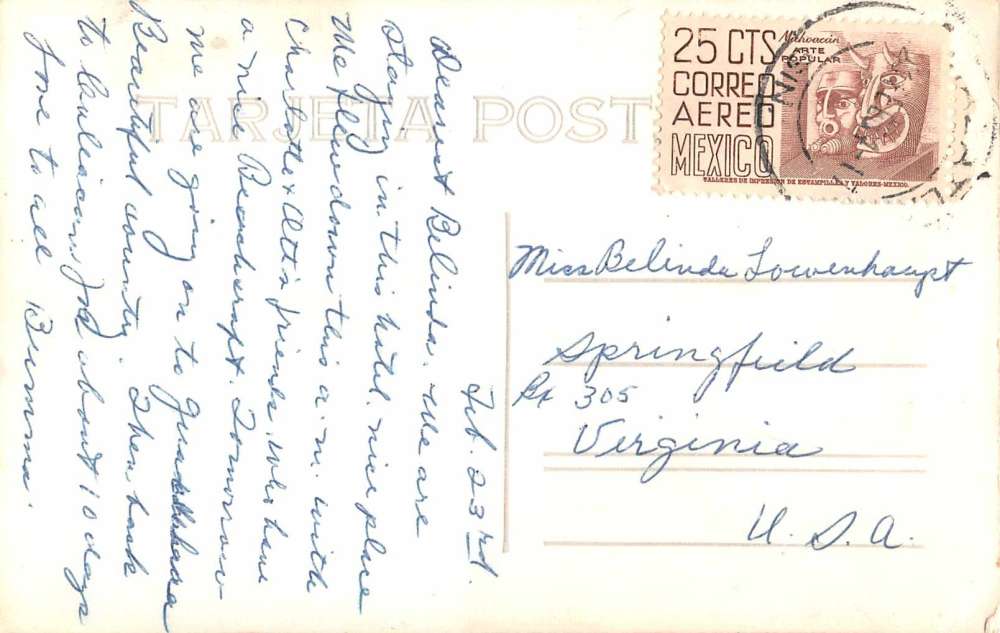 TARJETA POST
25 CTS
CORREO
AEREO
MEXICO
Michoacán
ARTE
POPULAR
TALLERES DE IMPRESION DE ESTAMPILLAS Y VALORES-MEXICO.
Feb. 23rd.
Dearest Belinda. We are
staying in this hotel. nice place
We flew down this a.m. with
Charlotte & friends. who have
a nice Beechcraft. Tomorrow
we are going on to Guadalahara
Beautiful country. Then back
to Culiacan for about 10 days
Love to all
Miss Belinda Lowenhaupt
Springfield
Bx 305
Virginia
U. S. A.